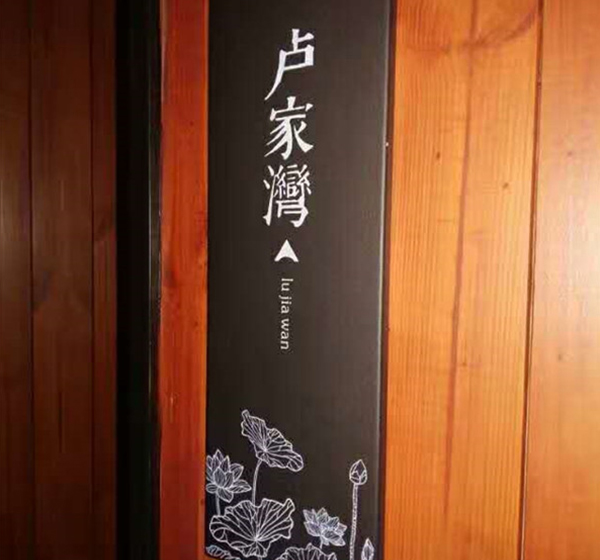 卢家灣
lu jia wan